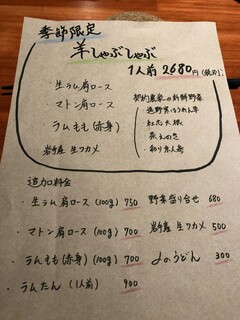 季節限定
羊しゃぶしゃぶ
1人前 2680円(税別)
・生ラム肩ロース
・マトン肩ロース
・ラムもも(赤身)
・岩手産 生ワカメ
契約農家の新鮮野菜
・遠野寒ほうれん草
・紅芯大根
・茶えのき
・彩り京人参
追加料金
・生ラム肩ロース(100g) 750
・マトン肩ロース(100g) 700
・ラムもも(赤身)(100g) 700
・ラムたん(1人前) 900
野菜盛り合せ 680
岩手産 生ワカメ 500
〆のうどん 300